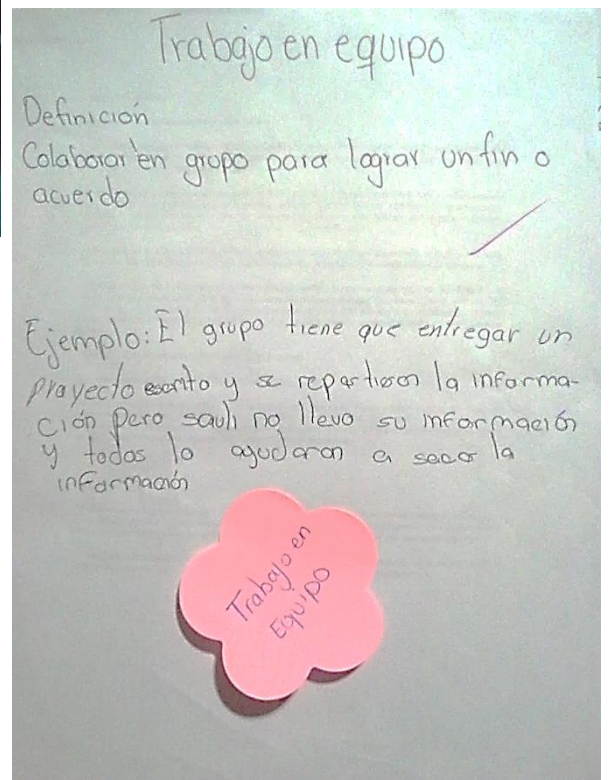 Trabajo en equipo
Definición
Colaborar en grupo para lograr un fin o
acuerdo
Ejemplo: El grupo tiene que entregar un
proyecto escrito y se repartieron la informa-
ción pero sauli no llevo su información
y todos lo ayudaron a sacar la
información
Trabajo en
Equipo